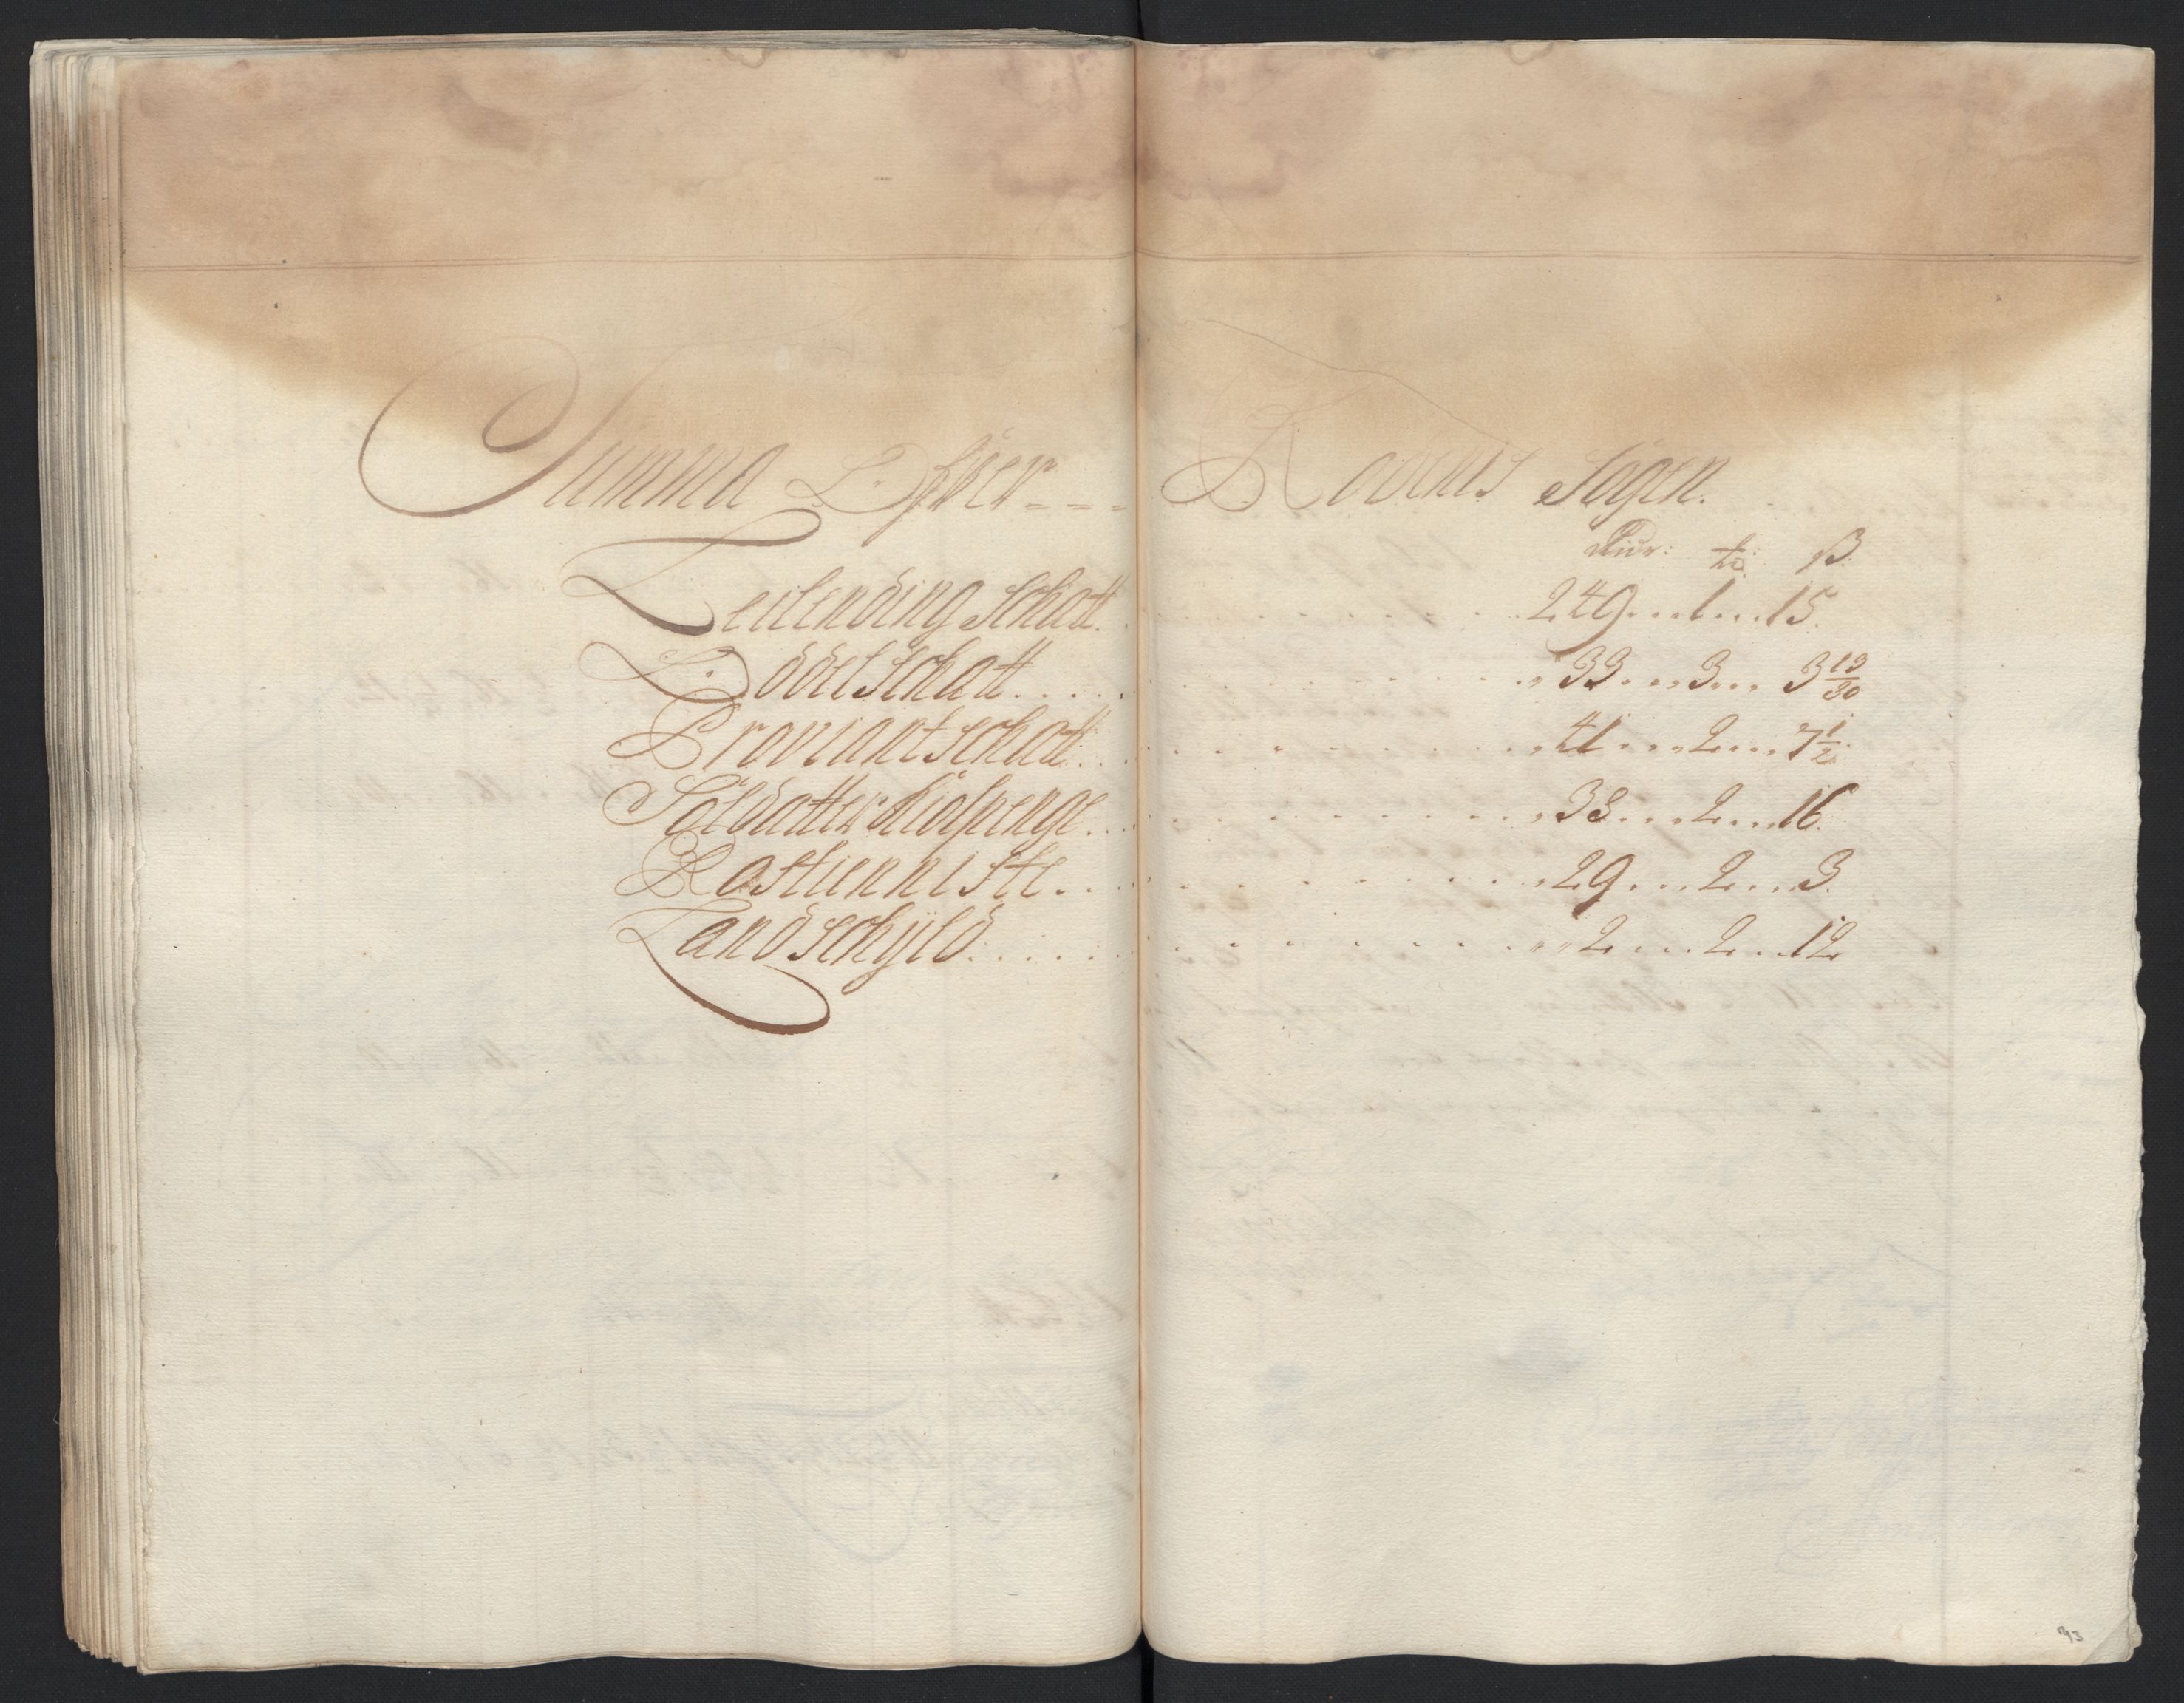 Summa Ofwer - - - Rodens Sogen.
Rixr: ort: ß:
Leilending Schatt. . . . . 249 . . . 1 . . . 15.
Oddel Schatt . . . . . 33 . . . 3 . . . 3 19/30
Proviant Schatt . . . . . 41 . . . 2 . . . 7 1/2
Soldatter Skiospenge . . . . . 38 . . . 2 . . . 16.
Rostienniste . . . . . 29 . . . 2 . . . 3.
Landschyld . . . . . 2 . . . 2 . . . 12